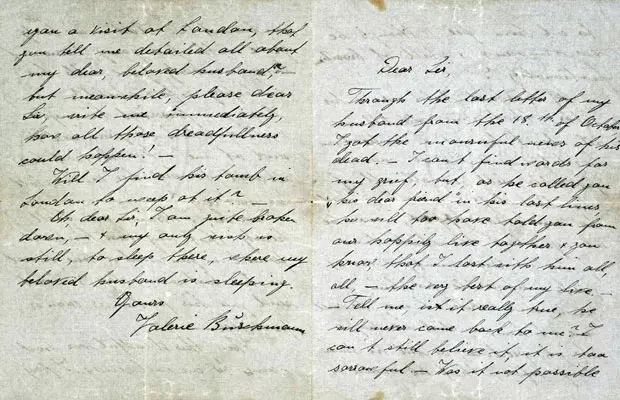 Dear Sir,
Through the last letter of my
husband from the 18th of October
I got the mournful news of his
dead. - I can't find words for
my grief, but, as he called you
"his dear friend" in his last lines
he will too have told you from
our happily live together & you
know that I lost with him all,
all, - the very best of my live. -
- Tell me, is it really true, he
will never come back to me? I
can't still believe it, it is too
sorrowful. - Was it not possible
you a visit at London, that
you tell me detailed all about
my dear, beloved husband, -
but meanwhile, please dear
Sir, write me immediately,
how all those dreadfullness
could happen. -
Will I find his tomb in
London to weep at it? -
Oh dear Sir, I am quite broken
down, - & my only wish is
still, to sleep there, where my
beloved husband is sleeping.
Yours
Valerie Büschmann